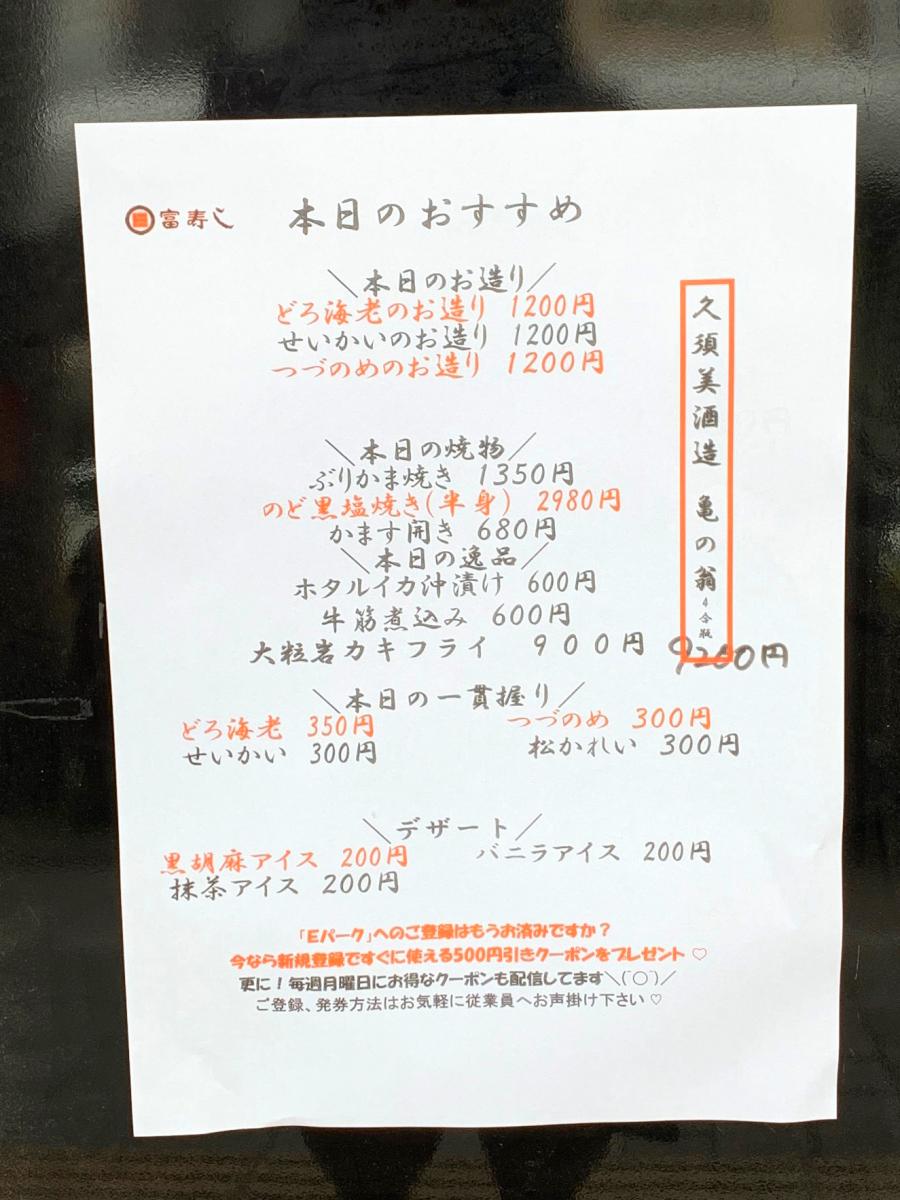 富寿し
本日のおすすめ
＼本日のお造り／
どろ海老のお造り 1200円
せいかいのお造り 1200円
つづのめのお造り 1200円
＼本日の焼物／
ぶりかま焼き 1350円
のど黒塩焼き(半身) 2980円
かます開き 680円
＼本日の逸品／
ホタルイカ沖漬け 600円
牛筋煮込み 600円
大粒岩カキフライ 900円
久須美酒造 亀の翁 4合瓶
9200円
＼本日の一貫握り／
どろ海老 350円 つづのめ 300円
せいかい 300円 松かれい 300円
＼デザート／
黒胡麻アイス 200円 バニラアイス 200円
抹茶アイス 200円
「Eパーク」へのご登録はもうお済みですか？
今なら新規登録ですぐに使える500円引きクーポンをプレゼント♡
更に！毎週月曜日にお得なクーポンも配信してます＼(^○^)／
ご登録、発券方法はお気軽に従業員へお声掛け下さい♡